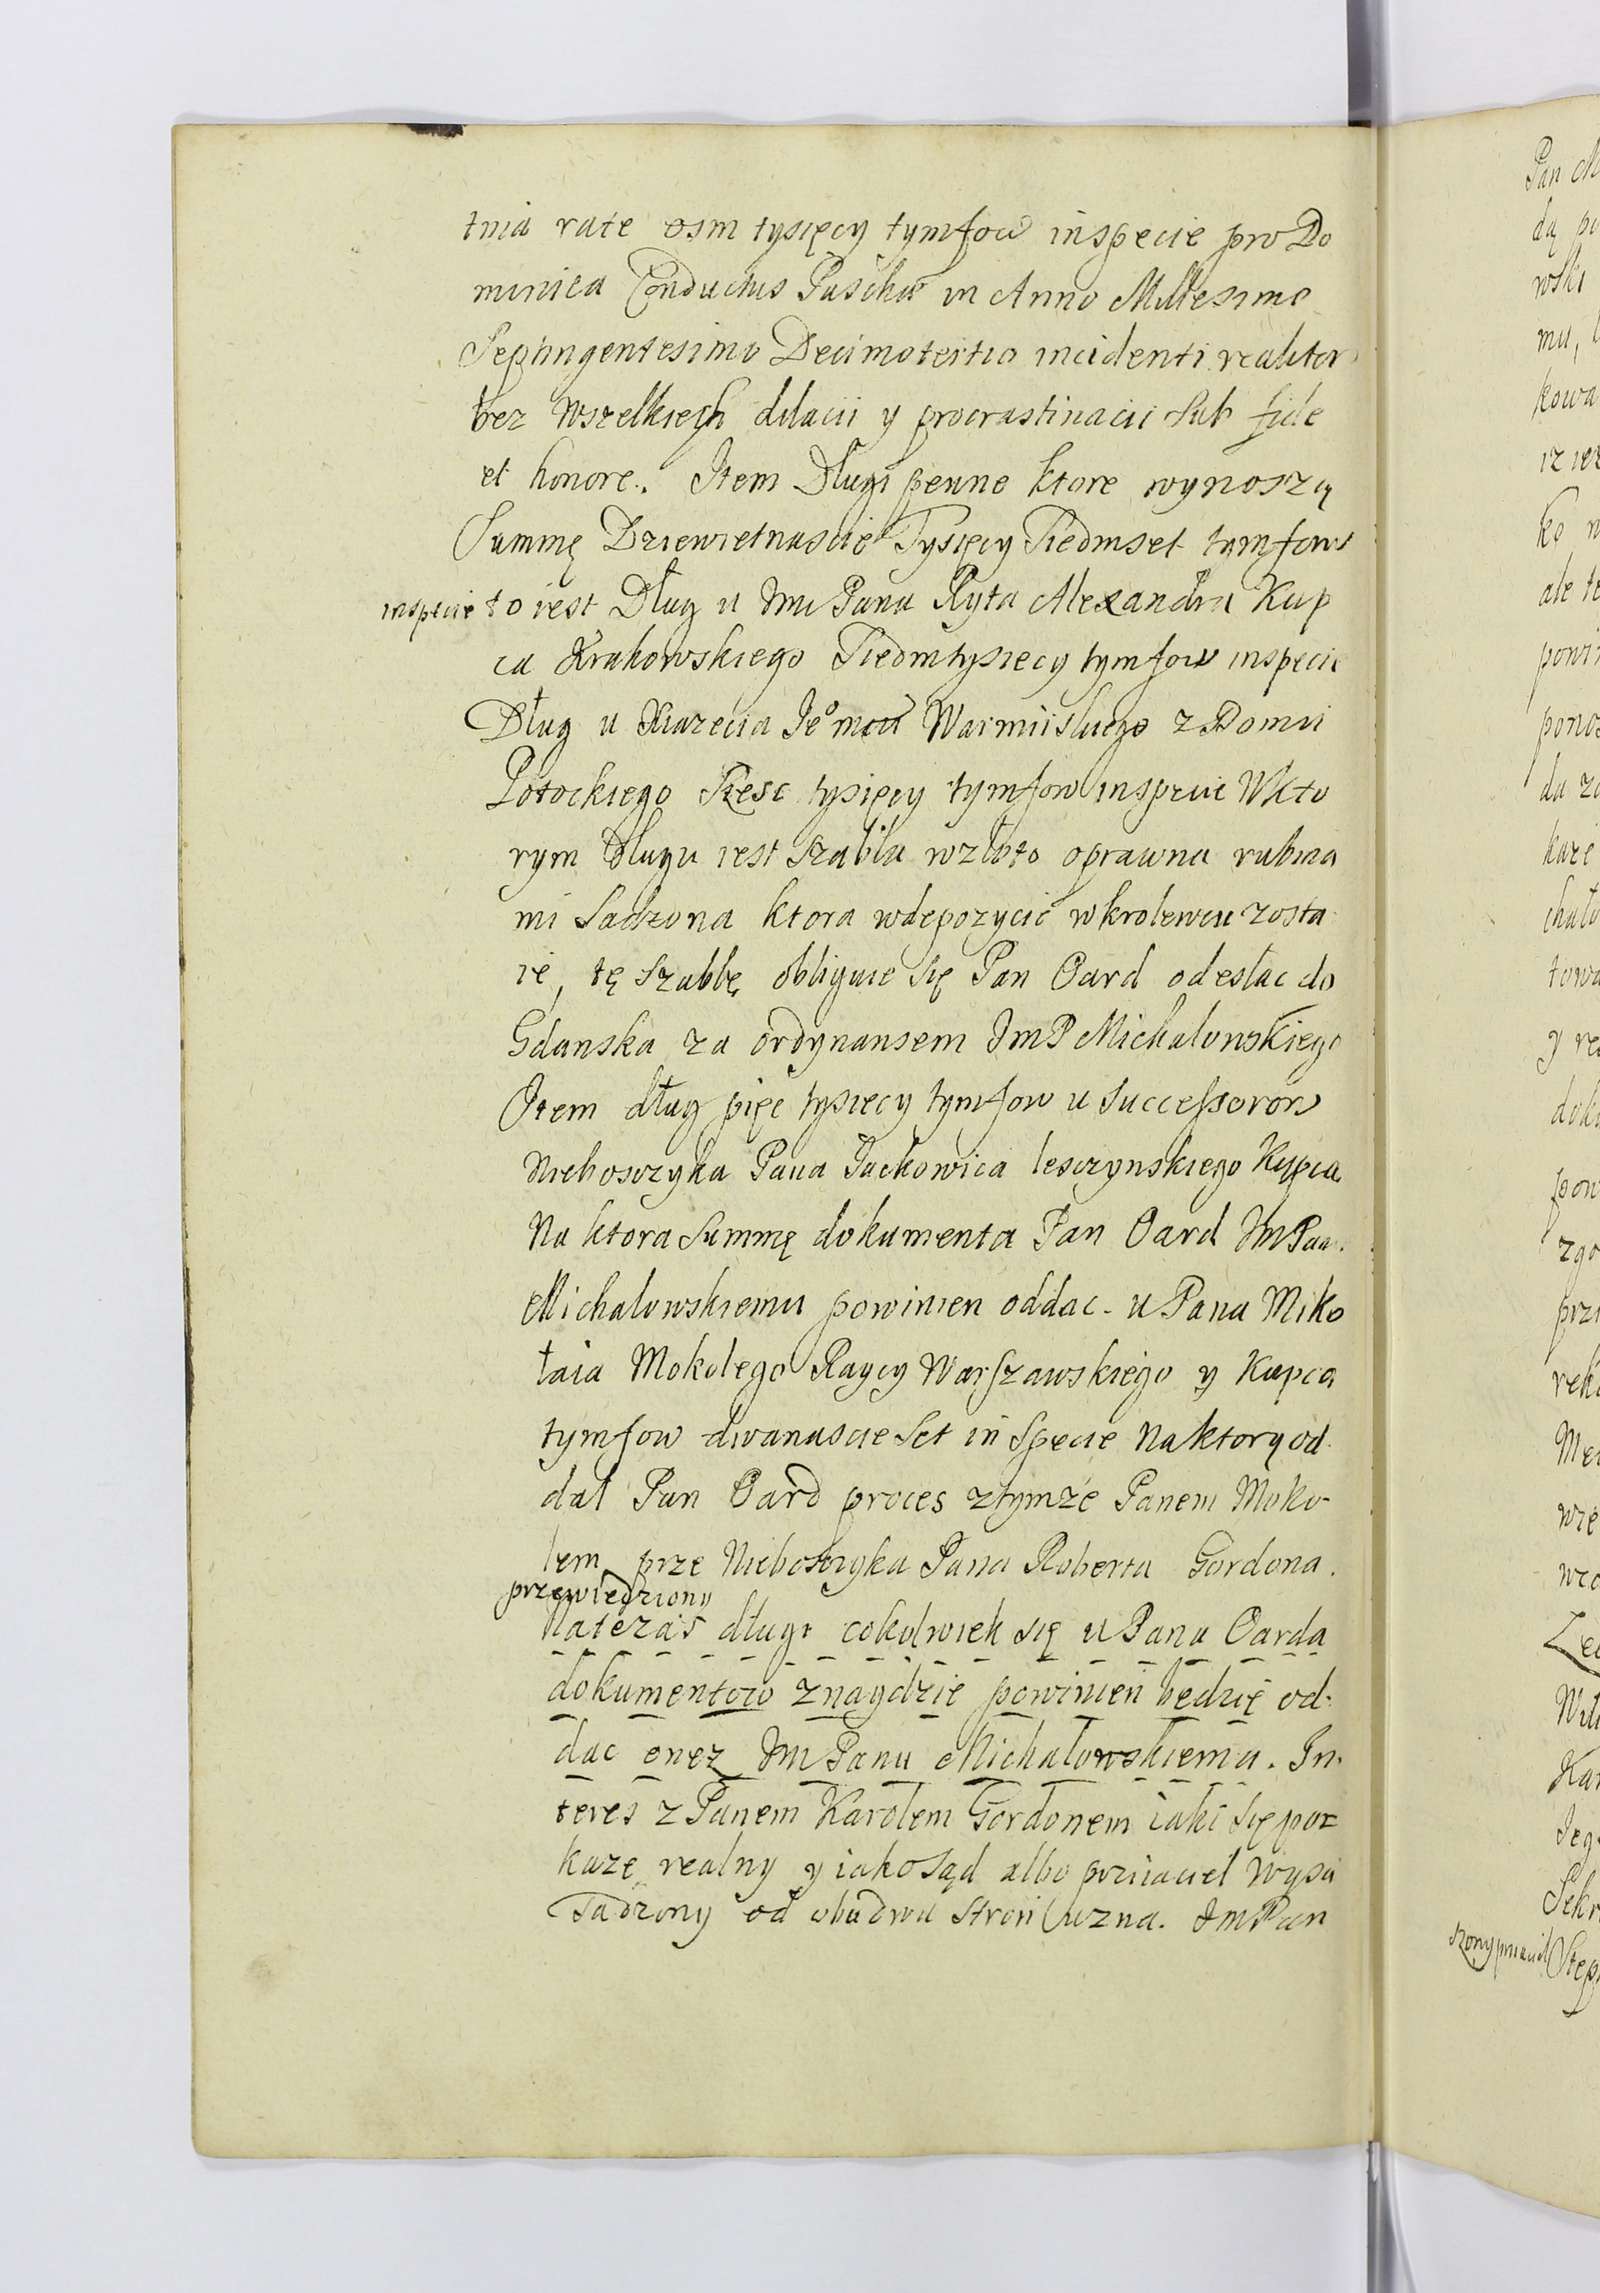 tnia rate osm tysięcy tymfow inspecie pro Do
minica Conductus Paschæ in Anno Millesimo
Septingentesimo Decimotertio incidenti realiter
bez wszelkiech dilacii y procrastinacii Sub fide
et honore. Item Długi pewne ktore wynoszą
Summę Dziewietnascie Tysięcy Siedmset tymfow
inspecie to iest Dług u Jmi Pana Ryta Alexandra Kup
ca Krakowskiego Siedmtysiecy tymfow inspecie
Dług u Xiazecia Jeomci Warmiiskiego z Domu
Potockiego Szesc tysięcy tymfow inspecie Wkto
rym Długu iest Szabla wzłoto oprawna rubina
mi Sadzona ktora wdepozycie wkrolewcu zosta
ie, tę Szablę obliguie Się Pan Oard odesłac do
Gdanska za ordynansem JmP Michałowskiego
Item dług pięc tysięcy tymfow u Successorow
Nieboszczyka Pana Jackowica lesczynskiego Kupca
Na ktora Summę dokumenta Pan Oard Jm Panu
Michałowskiemu powinien oddac - u Pana Miko
łaia Mokolego Raycy Warszawskiego y Kupca
tymfow dwanascie Set in Specie Naktory od
dał Pan Oard proces ztymże Panem Moko-
lem prze Nieboszczyka Pana Roberta Gordona.
przewiedziony
Nateraz długi cokolwiek się u Pana Oarda
dokumentow znaydzie powinien będzie od-
dac onez Jm Panu Michałowskiemu. In-
teres z Panem Karolem Gordonem iaki Się po=
kaze realny y iako Sąd albo przyiaciel Wysa
Sadzony od obudwu Stron uzna. Jm Pan
szony przyiaciel